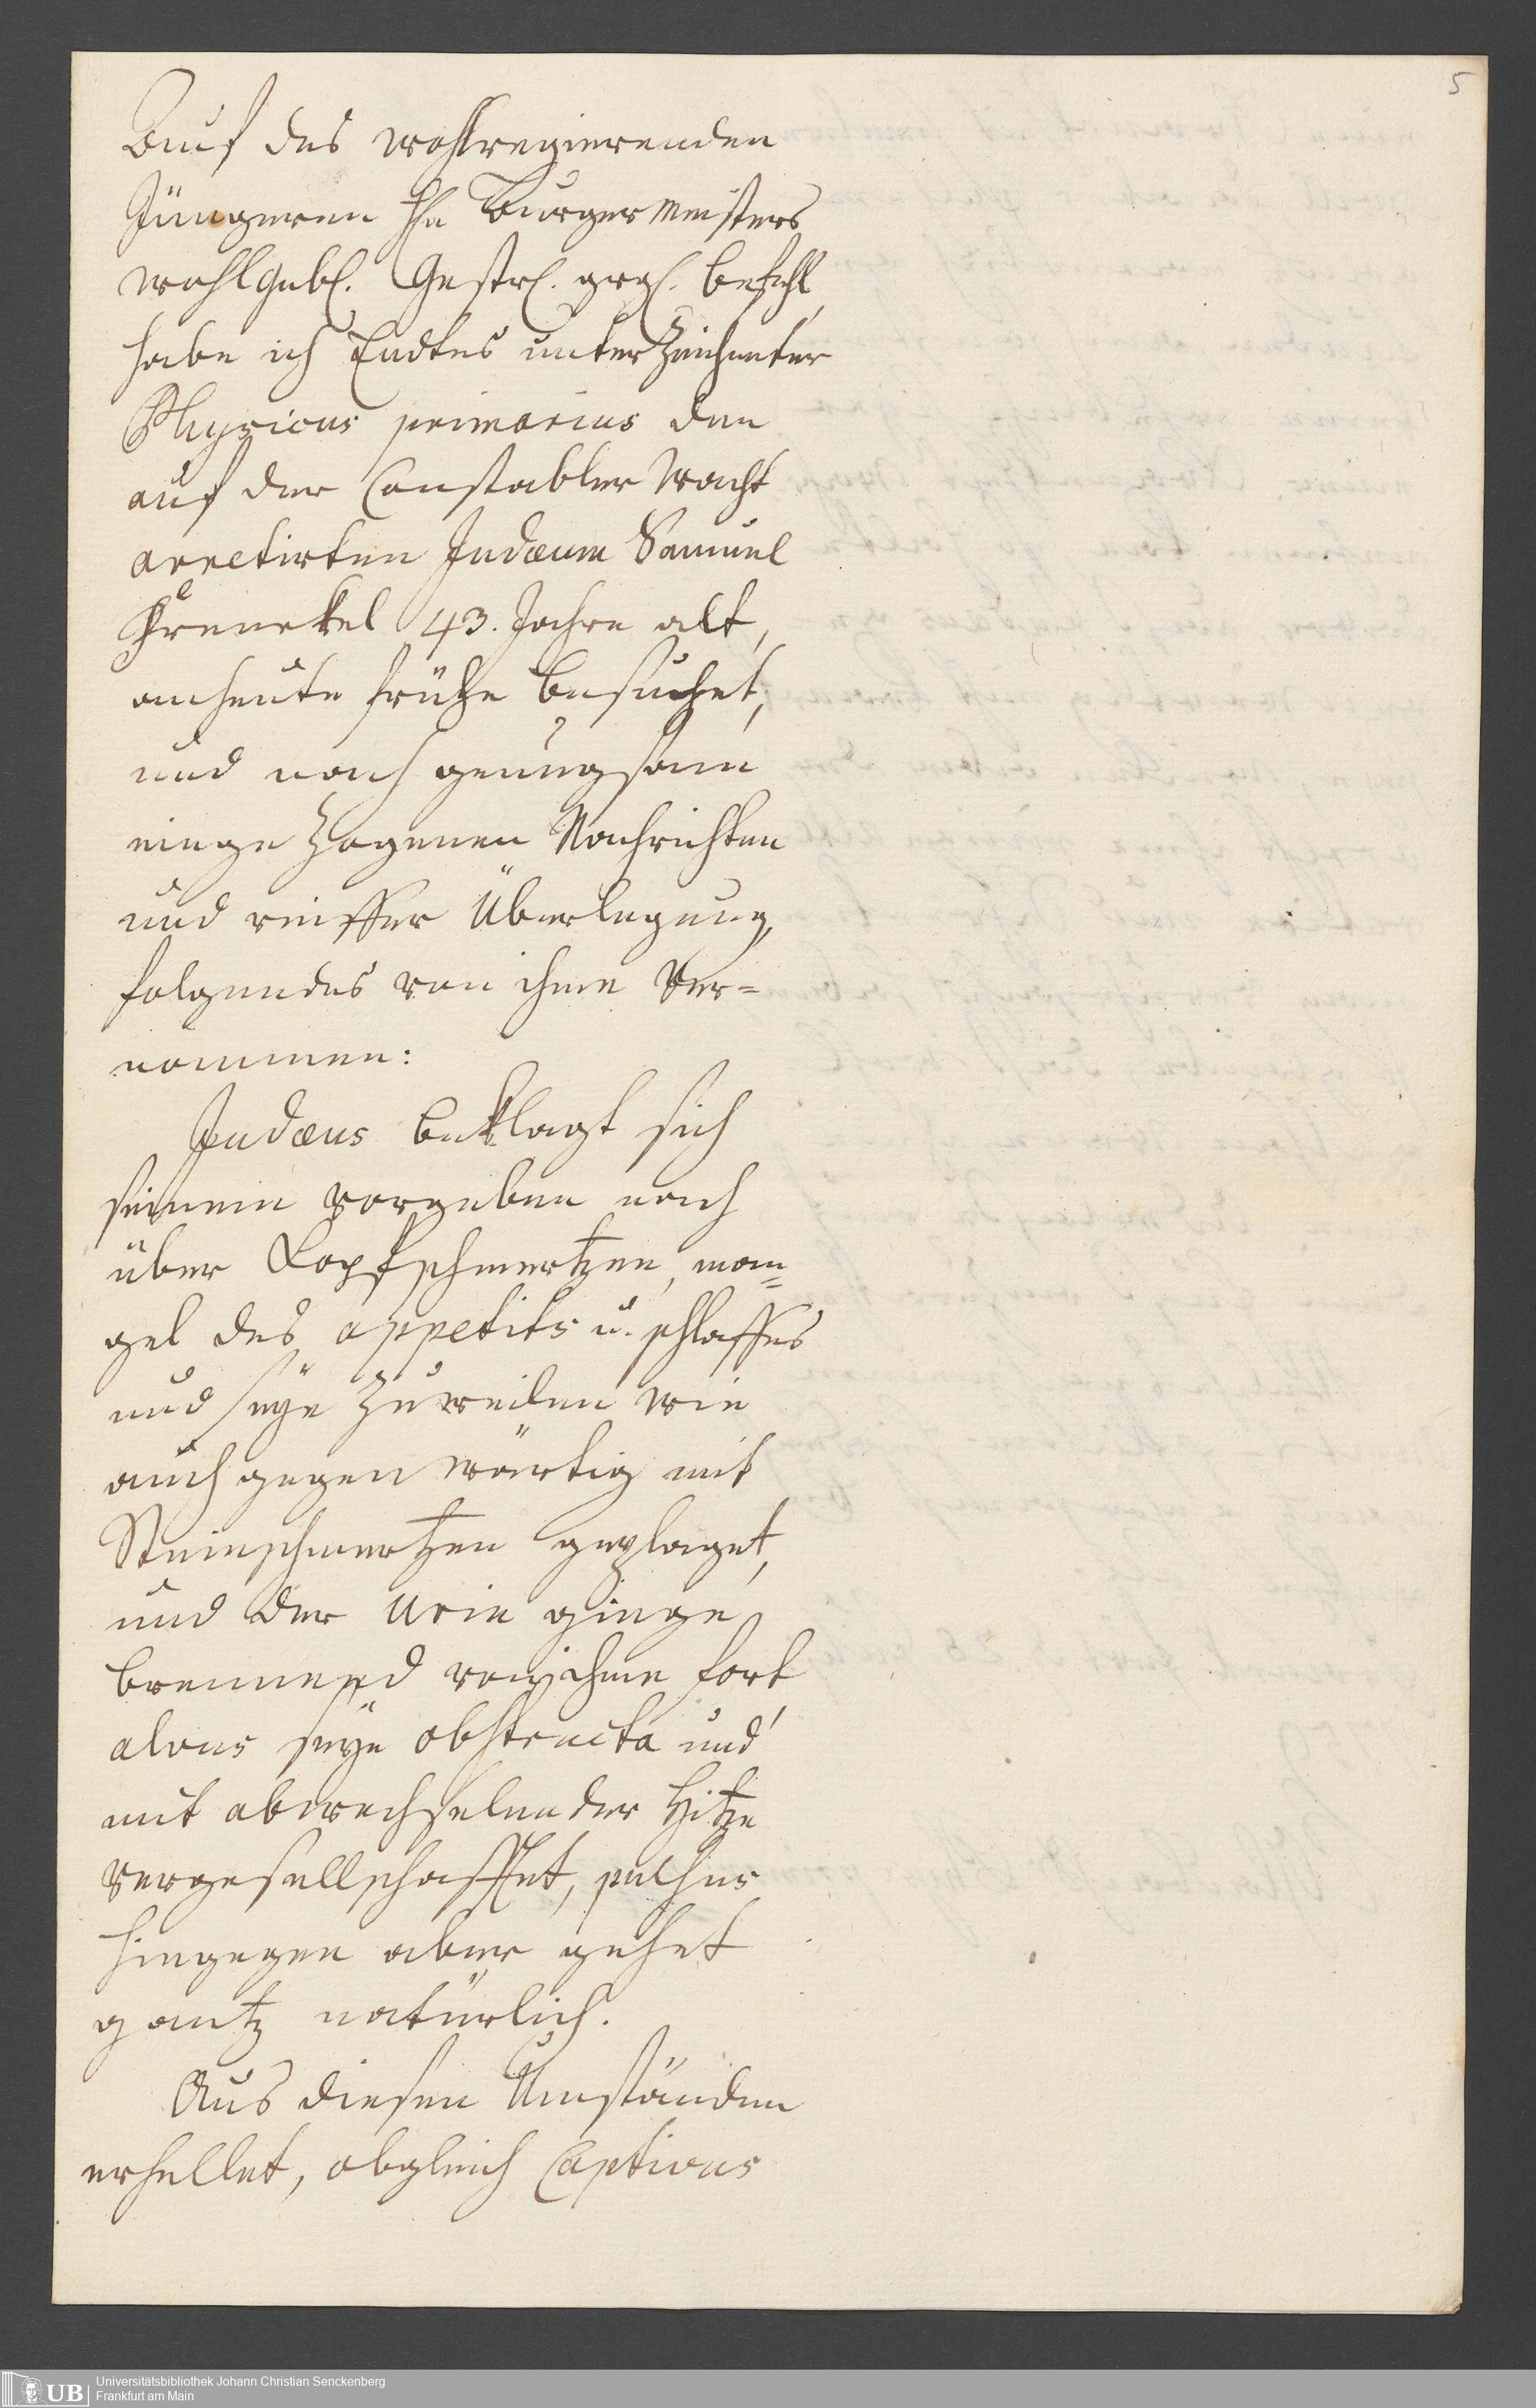 5
Auf des wohlregierenden
Jüngeren Hn Burgermeisters
wohlGebl. Gestrl. grgl. befehl,
habe ich Endtes unterzeichneter
Physicus primarius den
auf der Constabler Wacht
arretirten Judæum Samuel
43. Jahre alt,
anheute frühe besuchet,
und nach genungsam
eingezogenen Nachrichten
und reiffer Überlegung,
folgendes von ihme ver=
nommen:
Judæus beklagt sich
seinem vorgeben nach
über Kopfschmertzen, man=
gel des appetits u. schlaffes
und seÿe zuweilen wie
auch gegenwärtig mit
Steinschmertzen geplaget,
und der Urin ginge
brennend von ihme fort,
alvus seÿe obstructa und
mit abwechselender Hitze
vergesellschafftet, pulsus
hingegen aber gehet
gantz natürlich.
Aus diesen Umständen
erhellet, obgleich Captivus
UB
Universitätsbibliothek Johann Christian Senckenberg
Frankfurt am Main